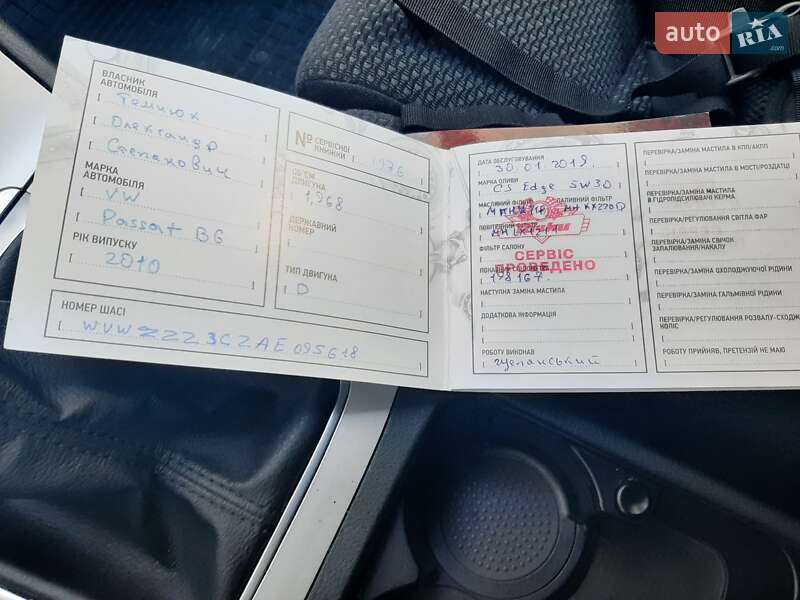 auto RIA.com
ВЛАСНИК
АВТОМОБІЛЯ
Олександр
Степанович
МАРКА
АВТОМОБІЛЯ
VW
Passat B6
РІК ВИПУСКУ
2010
№ СЕРВІСНОЇ
КНИЖКИ
1976
ОБ'ЄМ
ДВИГУНА
1,968
ДЕРЖАВНИЙ
НОМЕР
ТИП ДВИГУНА
D
НОМЕР ШАСІ
WVWZZZ3CZAE095618
ДАТА ОБСЛУГОВУВАННЯ
30.01.2019.
МАРКА ОЛИВИ
CS Edge 5W30
МАСЛЯНИЙ ФІЛЬТР
ПАЛИВНИЙ ФІЛЬТР
ПОВІТРЯНИЙ ФІЛЬТР
ФІЛЬТР САЛОНУ
СЕРВІС
ПРОВЕДЕНО
198167
НАСТУПНА ЗАМІНА МАСТИЛА
ДОДАТКОВА ІНФОРМАЦІЯ
РОБОТУ ВИКОНАВ
ПЕРЕВІРКА/ЗАМІНА МАСТИЛА В КПП/АКПП
ПЕРЕВІРКА/ЗАМІНА МАСТИЛА В МОСТІ/РОЗДАТЦІ
ПЕРЕВІРКА/ЗАМІНА МАСТИЛА
В ГІДРОПІДСИЛЮВАЧІ КЕРМА
ПЕРЕВІРКА/РЕГУЛЮВАННЯ СВІТЛА ФАР
ПЕРЕВІРКА/ЗАМІНА СВІЧОК
ЗАПАЛЮВАННЯ/НАКАЛУ
ПЕРЕВІРКА/ЗАМІНА ОХОЛОДЖУЮЧОЇ РІДИНИ
ПЕРЕВІРКА/ЗАМІНА ГАЛЬМІВНОЇ РІДИНИ
ПЕРЕВІРКА/РЕГУЛЮВАННЯ РОЗВАЛУ-СХОДЖ
КОЛІС
РОБОТУ ПРИЙНЯВ, ПРЕТЕНЗІЙ НЕ МАЮ